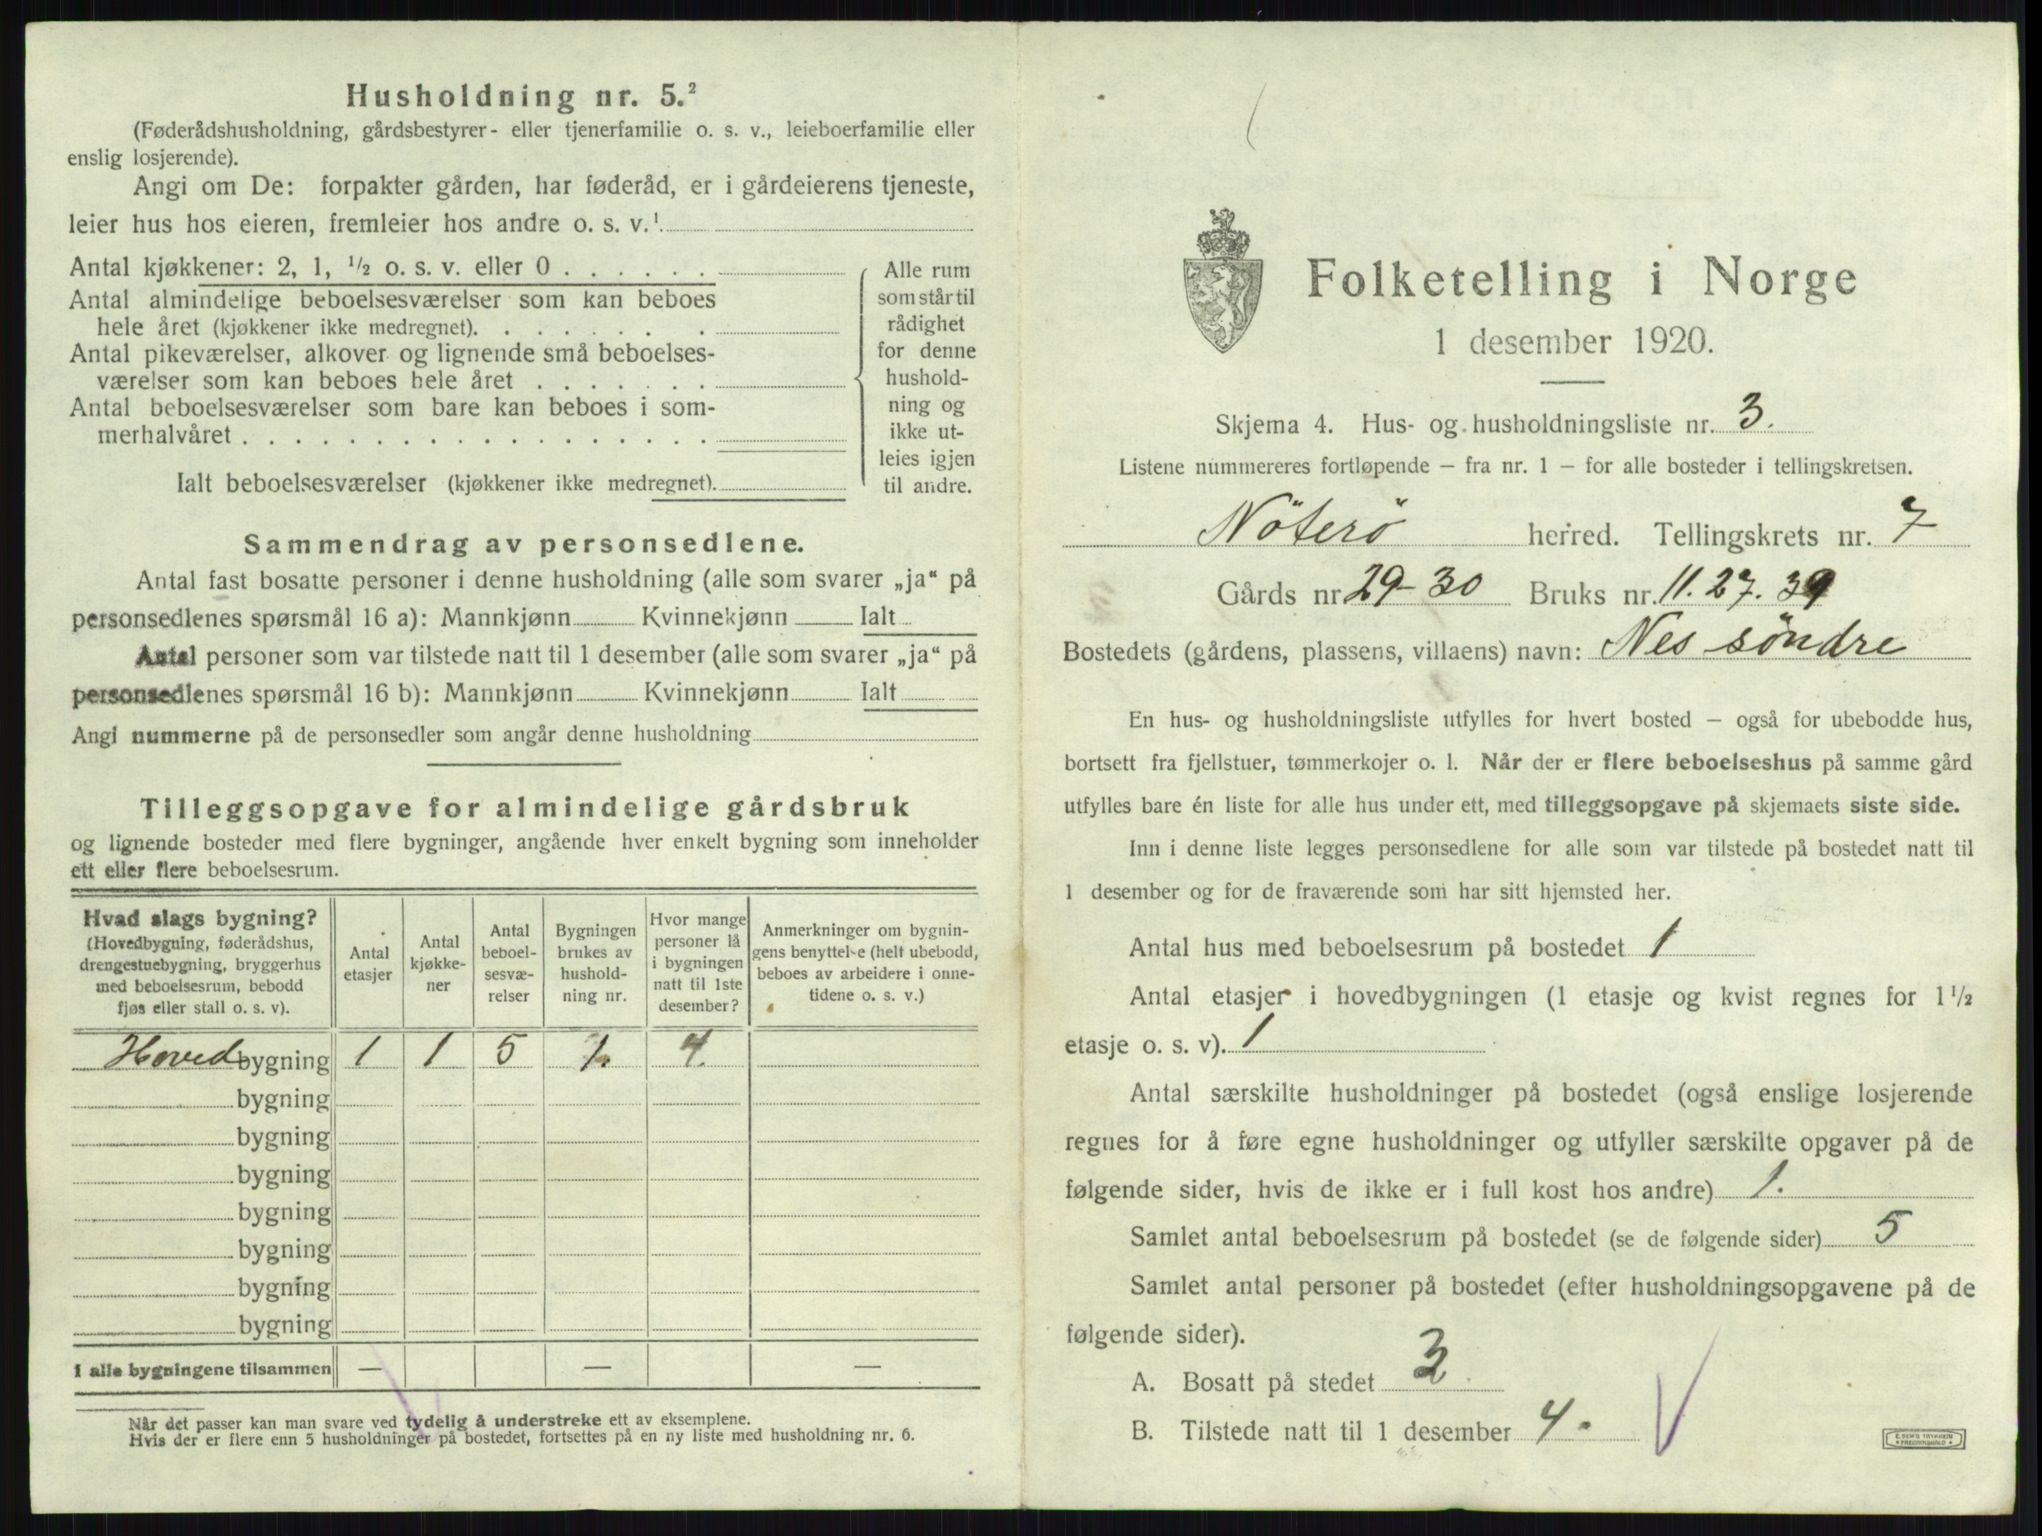 Husholdning nr. 5.²
(Føderådshusholdning, gårdsbestyrer- eller tjenerfamilie o. s. v., leieboerfamilie eller
enslig losjerende).
Angi om De: forpakter gården, har føderåd, er i gårdeierens tjeneste,
leier hus hos eieren, fremleier hos andre o. s. v.¹
Antal kjøkkener: 2, 1, ½ o. s. v. eller 0 . . . . . .
Antal almindelige beboelsesværelser som kan beboes
hele året (kjøkkener ikke medregnet). . . . . . . .
Antal pikeværelser, alkover og lignende små beboelses-
værelser som kan beboes hele året . . . . . . .
Antal beboelsesværelser som bare kan beboes i som-
merhalvåret . . . . . . . . . . . . . . . . . .
Ialt beboelsesværelser (kjøkkener ikke medregnet).
Alle rum
som står til
rådighet
for denne
hushold-
ning og
ikke ut-
leies igjen
til andre.
Sammendrag av personsedlene.
Antal fast bosatte personer i denne husholdning (alle som svarer „ja“ på
personsedlenes spørsmål 16 a): Mannkjønn Kvinnekjønn Ialt
Antal personer som var tilstede natt til 1 desember (alle som svarer „ja“ på
personsedlenes spørsmål 16 b): Mannkjønn Kvinnekjønn Ialt
Angi nummerne på de personsedler som angår denne husholdning
Tilleggsopgave for almindelige gårdsbruk
og lignende bosteder med flere bygninger, angående hver enkelt bygning som inneholder
ett eller flere beboelsesrum.
Hvad slags bygning?
(Hovedbygning, føderådshus,
drengestuebygning, bryggerhus
med beboelsesrum, bebodd
fjøs eller stall o. s. v).
Antal
etasjer
Antal
kjøkke-
ner
Antal
beboel-
sesvæ-
relser
Bygningen
brukes av
hushold-
ning nr.
Hvor mange
personer lå
i bygningen
natt til 1ste
desember?
Anmerkninger om bygnin-
gens benyttelse (helt ubebodd,
beboes av arbeidere i onne-
tidene o. s. v.)
Hoved bygning 1 1 5 1. 4.
bygning
bygning
bygning
bygning
bygning
bygning
bygning
I alle bygningene tilsammen — — —
Når det passer kan man svare ved tydelig å understreke ett av eksemplene.
Hvis der er flere enn 5 husholdninger på bostedet, fortsettes på en ny liste med husholdning nr. 6.
Folketelling i Norge
1 desember 1920.
Skjema 4. Hus- og husholdningsliste nr. 3.
Listene nummereres fortløpende – fra nr. 1 – for alle bosteder i tellingskretsen.
Nöterö herred. Tellingskrets nr. 7
Gårds nr 29-30 Bruks nr. 11. 27. 39
Bostedets (gårdens, plassens, villaens) navn: Nes söndre
En hus- og husholdningsliste utfylles for hvert bosted – også for ubebodde hus,
bortsett fra fjellstuer, tømmerkojer o. l. Når der er flere beboelseshus på samme gård
utfylles bare én liste for alle hus under ett, med tilleggsopgave på skjemaets siste side.
Inn i denne liste legges personsedlene for alle som var tilstede på bostedet natt til
1 desember og for de fraværende som har sitt hjemsted her.
Antal hus med beboelsesrum på bostedet 1
Antal etasjer i hovedbygningen (1 etasje og kvist regnes for 1½
etasje o. s. v). 1
Antal særskilte husholdninger på bostedet (også enslige losjerende
regnes for å føre egne husholdninger og utfyller særskilte opgaver på de
følgende sider, hvis de ikke er i full kost hos andre) 1.
Samlet antal beboelsesrum på bostedet (se de følgende sider) 5
Samlet antal personer på bostedet (efter husholdningsopgavene på de
følgende sider).
A. Bosatt på stedet 3
B. Tilstede natt til 1 desember 4.